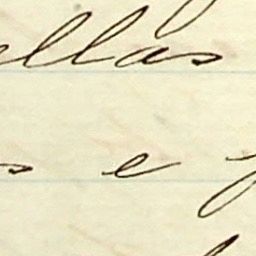 ellas
s e